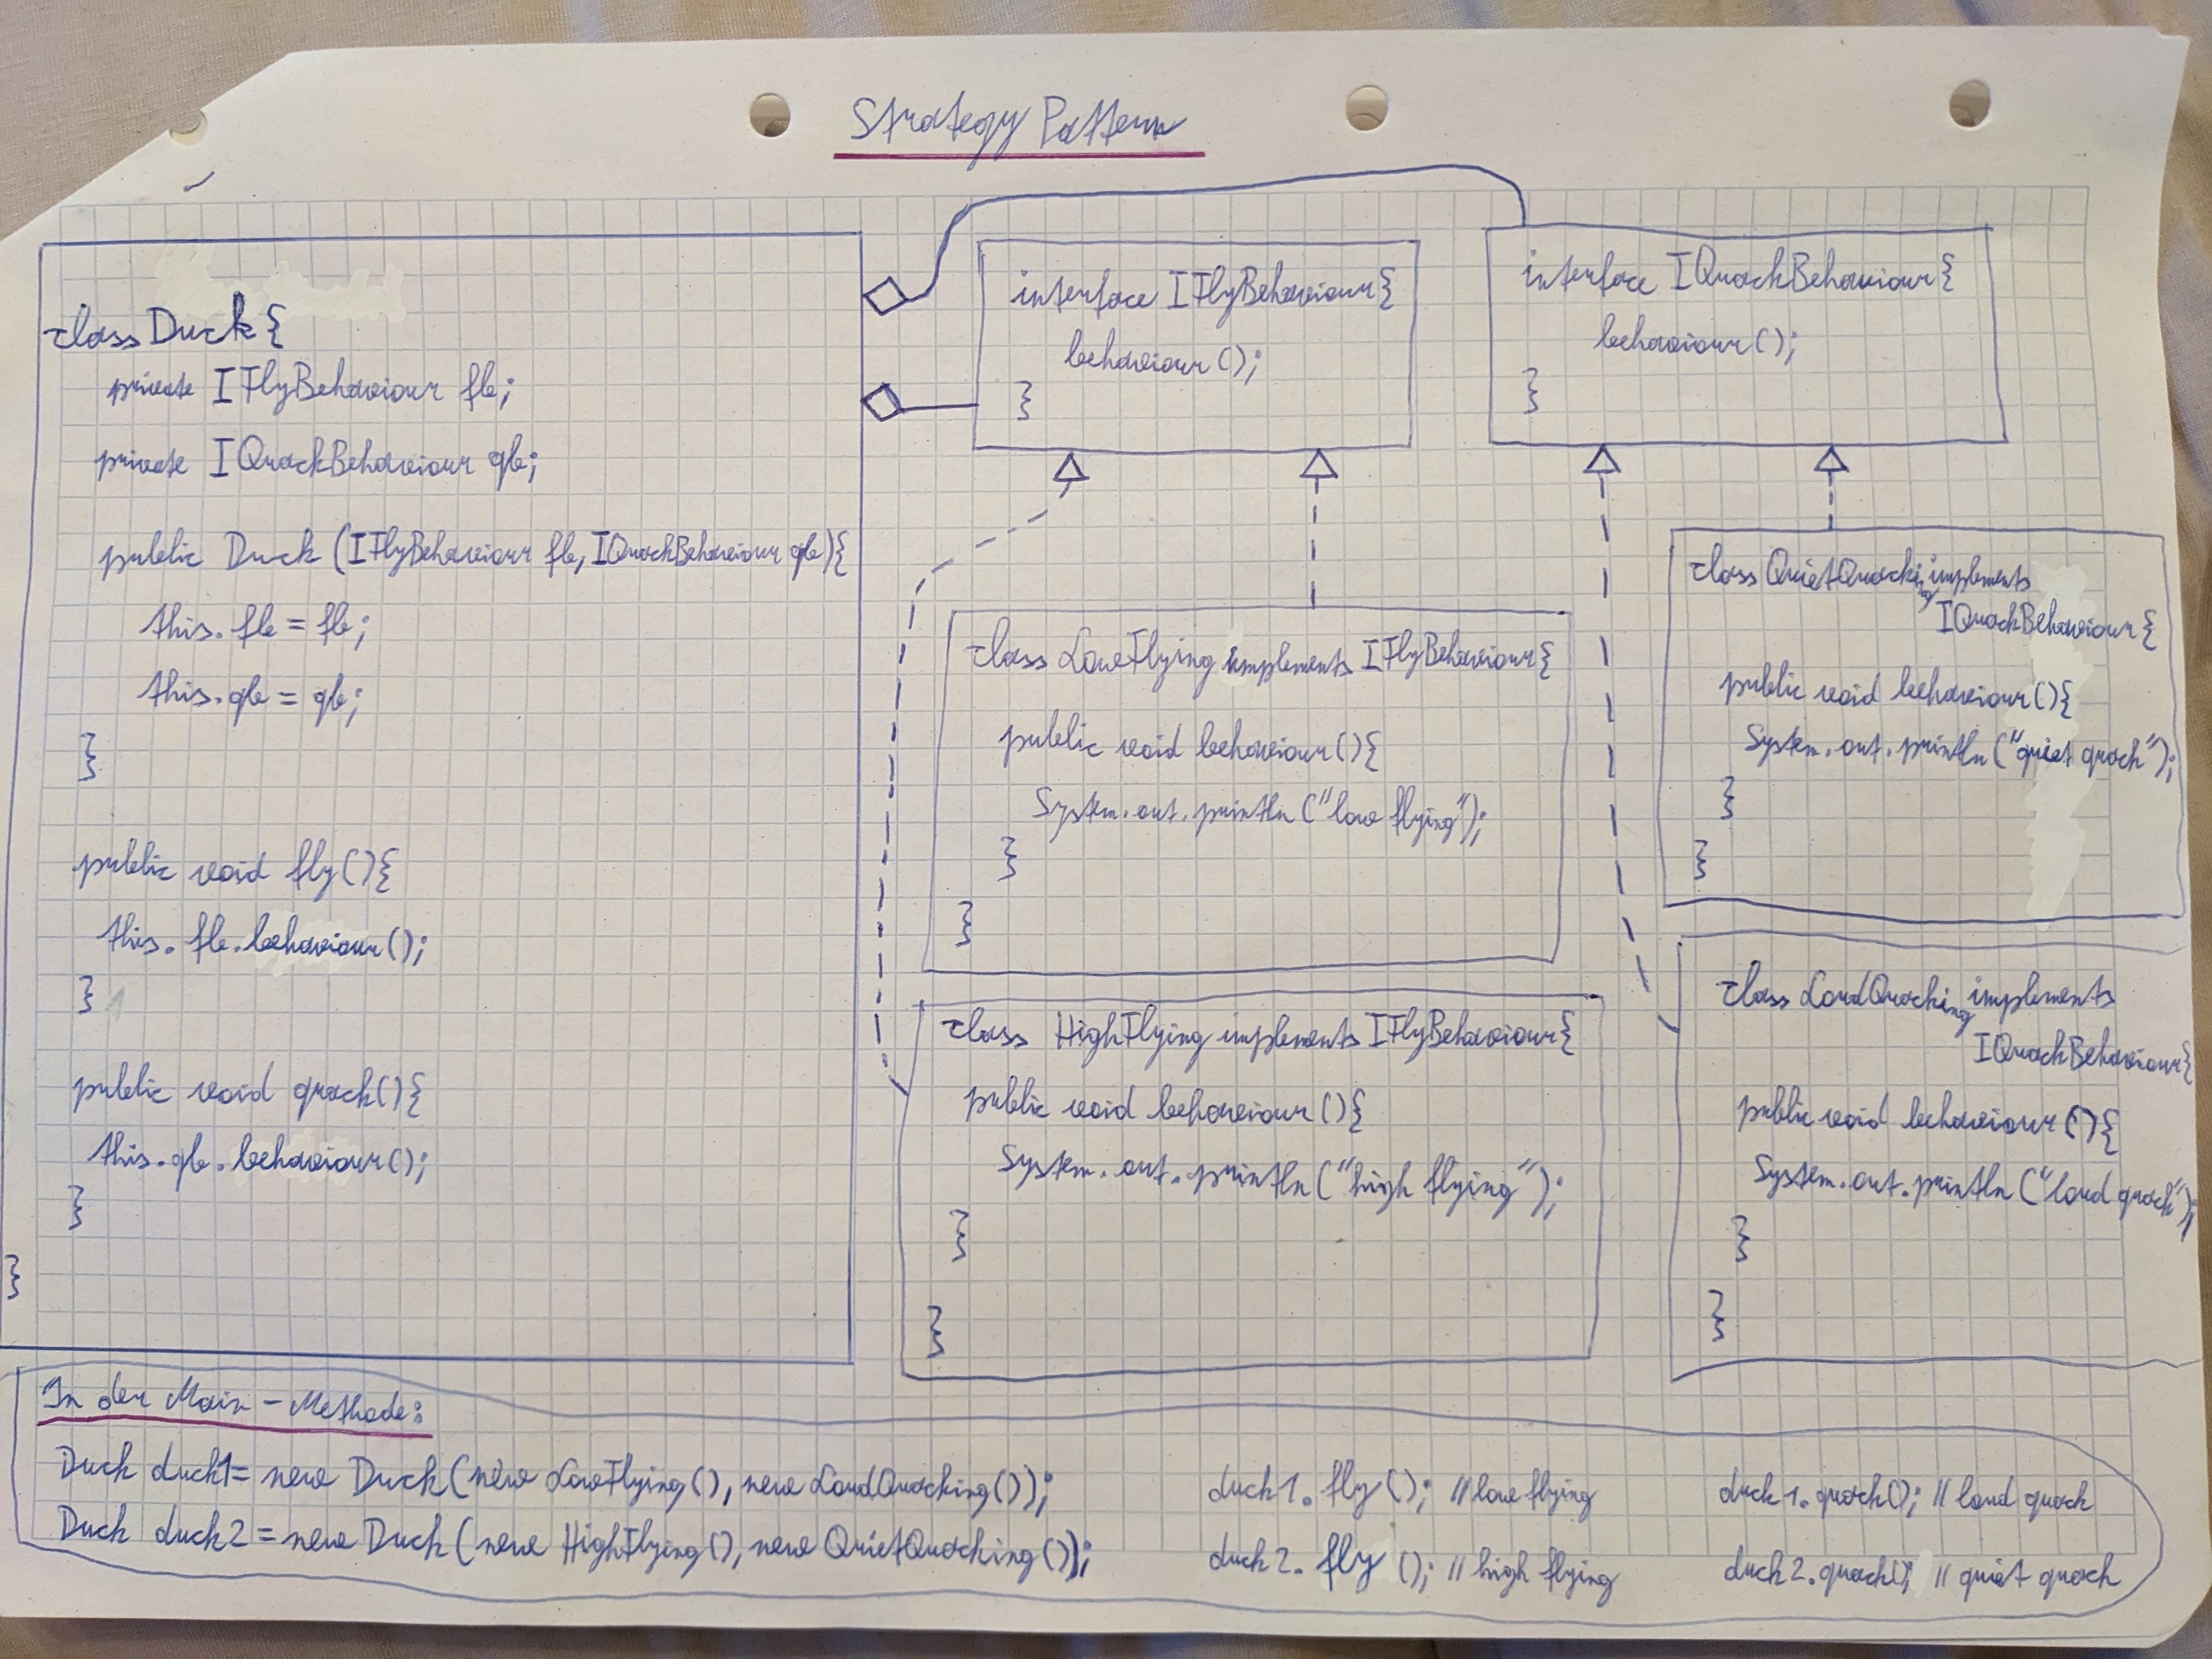 Strategy Pattern
class Duck {
private IFlyBehaviour fb;
private IQuackBehaviour qb;
public Duck (IFlyBehaviour fb, IQuackBehaviour qb){
this.fb = fb;
this.qb = qb;
}
public void fly(){
this.fb.behaviour();
}
public void quack(){
this.qb.behaviour();
}
}
interface IFlyBehaviour{
behaviour();
}
interface IQuackBehaviour{
behaviour();
}
class LowFlying implements IFlyBehaviour{
public void behaviour(){
System.out.println("low flying");
}
}
class HighFlying implements IFlyBehaviour{
public void behaviour(){
System.out.println("high flying");
}
}
class QuietQuacking implements
IQuackBehaviour{
public void behaviour(){
System.out.println("quiet quack");
}
}
class LoudQuacking implements
IQuackBehaviour{
public void behaviour(){
System.out.println("loud quack");
}
}
In der Main-Methode:
Duck duck1 = new Duck(new LowFlying(), new LoudQuacking());
Duck duck2 = new Duck(new HighFlying(), new QuietQuacking());
duck1.fly(); // low flying
duck2.fly(); // high flying
duck1.quack(); // loud quack
duck2.quack(); // quiet quack